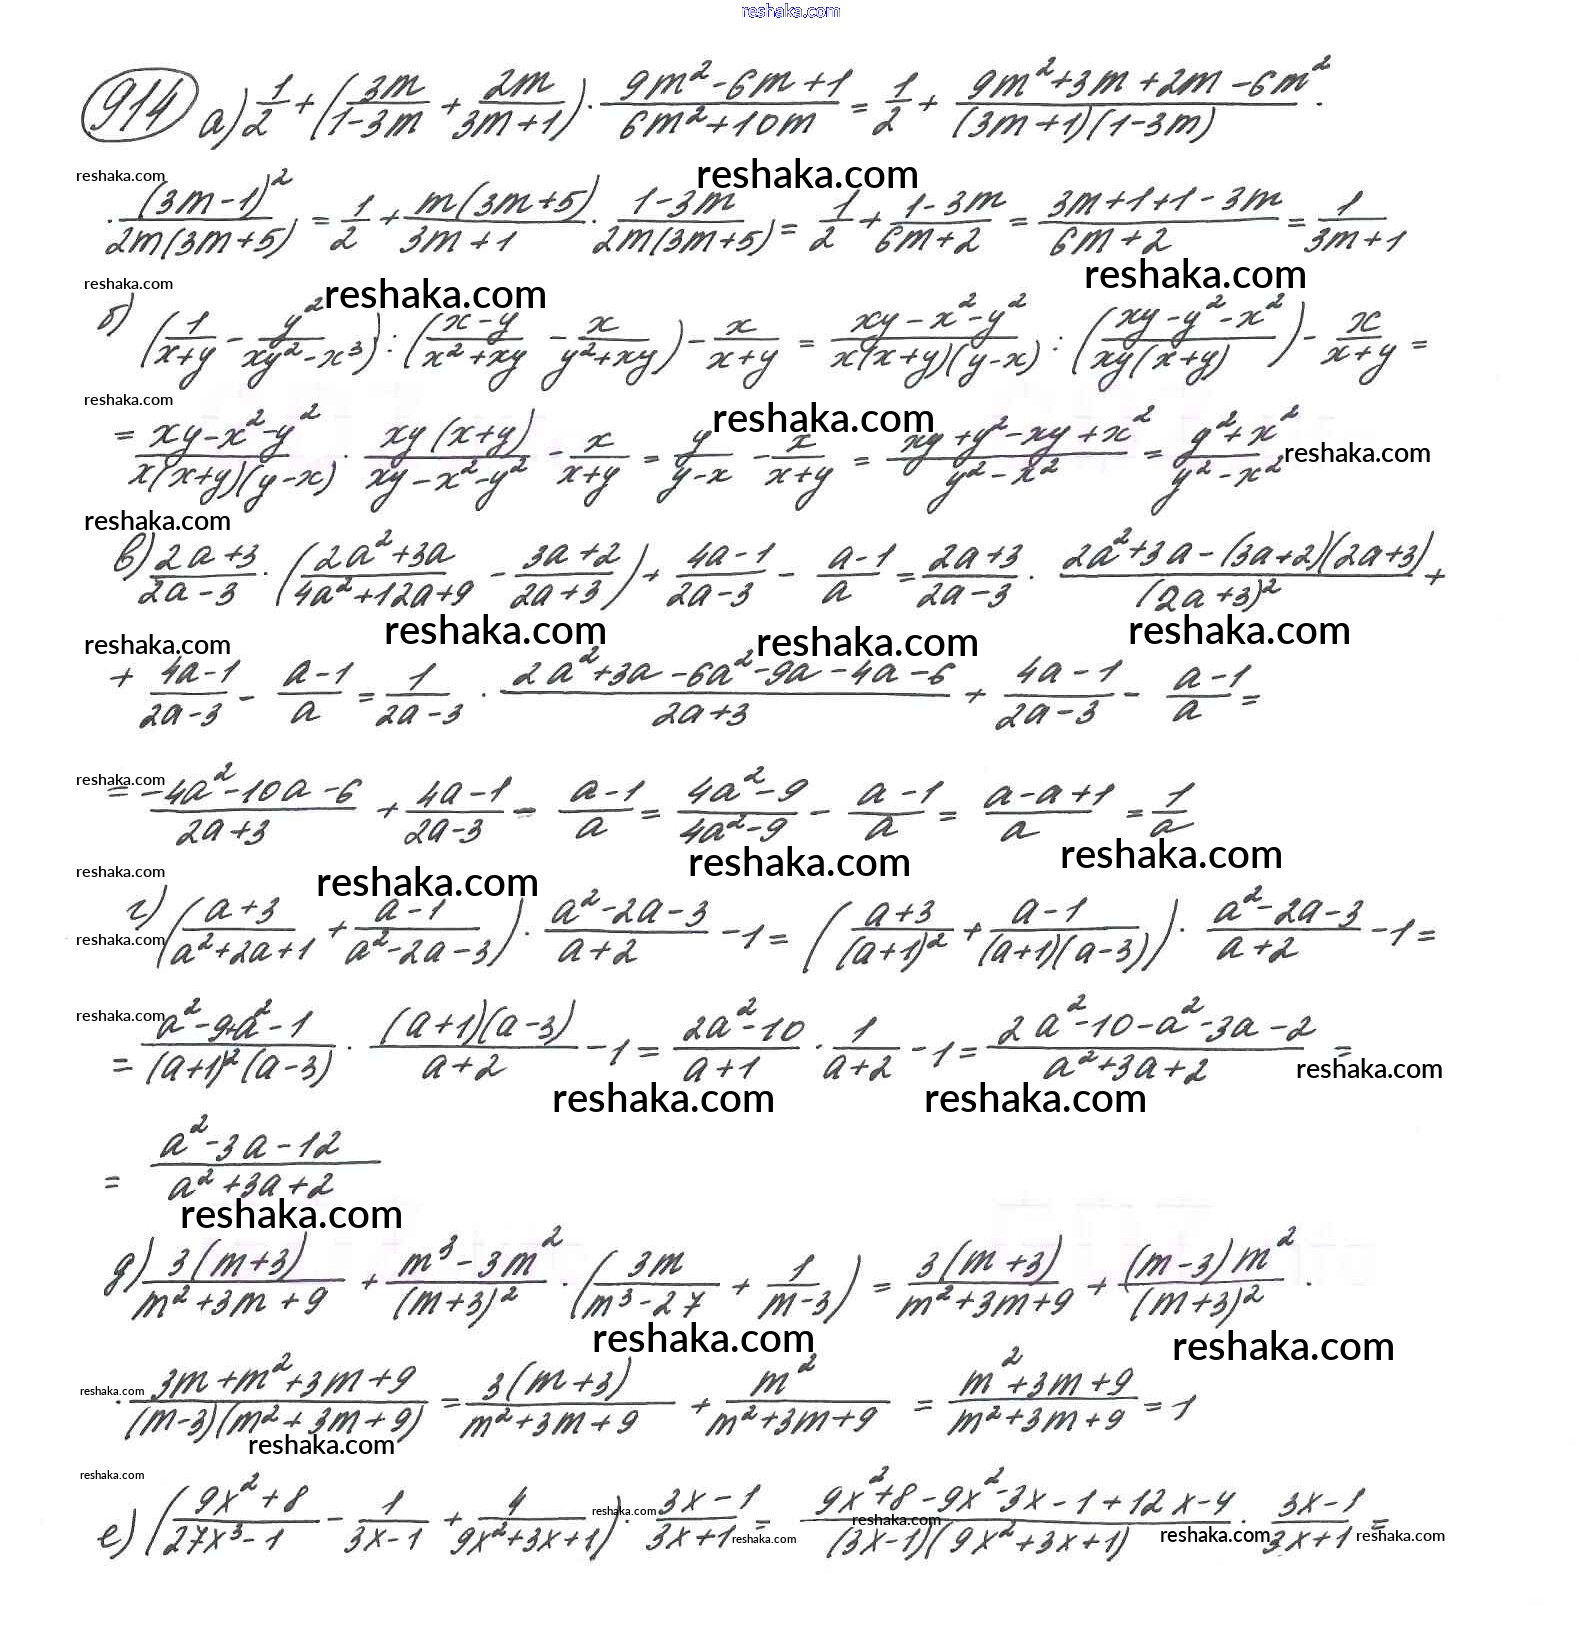 reshaka.com
914 а) 1/2 + (3m/(1-3m) + 2m/(3m+1)) · (9m²-6m+1)/(6m²+10m) = 1/2 + (9m²+3m+2m-6m²)/((3m+1)(1-3m)) ·
reshaka.com reshaka.com
· (3m-1)²/(2m(3m+5)) = 1/2 + m(3m+5)/(3m+1) · (1-3m)/(2m(3m+5)) = 1/2 + (1-3m)/(6m+2) = (3m+1+1-3m)/(6m+2) = 1/(3m+1)
reshaka.com reshaka.com reshaka.com
б) (1/(x+y) - y²/(xy²-x³)) : ((x-y)/(x²+xy) - x/(y²+xy)) - x/(x+y) = (xy-x²-y²)/(x(x+y)(y-x)) : ((xy-y²-x²)/(xy(x+y))) - x/(x+y) =
reshaka.com reshaka.com
= (xy-x²-y²)/(x(x+y)(y-x)) · xy(x+y)/(xy-x²-y²) - x/(x+y) = y/(y-x) - x/(x+y) = (xy+y²-xy+x²)/(y²-x²) = (y²+x²)/(y²-x²) reshaka.com
reshaka.com
в) (2a+3)/(2a-3) · ((2a²+3a)/(4a²+12a+9) - (3a+2)/(2a+3)) + (4a-1)/(2a-3) - (a-1)/a = (2a+3)/(2a-3) · (2a²+3a-(3a+2)(2a+3))/(2a+3)² +
reshaka.com reshaka.com reshaka.com reshaka.com
+ (4a-1)/(2a-3) - (a-1)/a = 1/(2a-3) · (2a²+3a-6a²-9a-4a-6)/(2a+3) + (4a-1)/(2a-3) - (a-1)/a =
reshaka.com
= (-4a²-10a-6)/(2a+3) + (4a-1)/(2a-3) - (a-1)/a = (4a²-9)/(4a²-9) - (a-1)/a = (a-a+1)/a = 1/a
reshaka.com reshaka.com reshaka.com reshaka.com
г) ((a+3)/(a²+2a+1) + (a-1)/(a²-2a-3)) · (a²-2a-3)/(a+2) - 1 = ((a+3)/(a+1)² + (a-1)/((a+1)(a-3))) · (a²-2a-3)/(a+2) - 1 =
reshaka.com
reshaka.com
= (a²-9+a²-1)/((a+1)²(a-3)) · (a+1)(a-3)/(a+2) - 1 = (2a²-10)/(a+1) · 1/(a+2) - 1 = (2a²-10-a²-3a-2)/(a²+3a+2) =
reshaka.com reshaka.com reshaka.com
= (a²-3a-12)/(a²+3a+2)
reshaka.com
д) 3(m+3)/(m²+3m+9) + (m³-3m²)/(m+3)² · (3m/(m³-27) + 1/(m-3)) = 3(m+3)/(m²+3m+9) + (m-3)m²/(m+3)² ·
reshaka.com reshaka.com
reshaka.com · (3m+m²+3m+9)/((m-3)(m²+3m+9)) = 3(m+3)/(m²+3m+9) + m²/(m²+3m+9) = (m²+3m+9)/(m²+3m+9) = 1
reshaka.com
reshaka.com
е) ((9x²+8)/(27x³-1) - 1/(3x-1) + 4/(9x²+3x+1)) · (3x-1)/(3x+1) = (9x²+8-9x²-3x-1+12x-4)/((3x-1)(9x²+3x+1)) · (3x-1)/(3x+1) =
reshaka.com reshaka.com reshaka.com reshaka.com reshaka.com